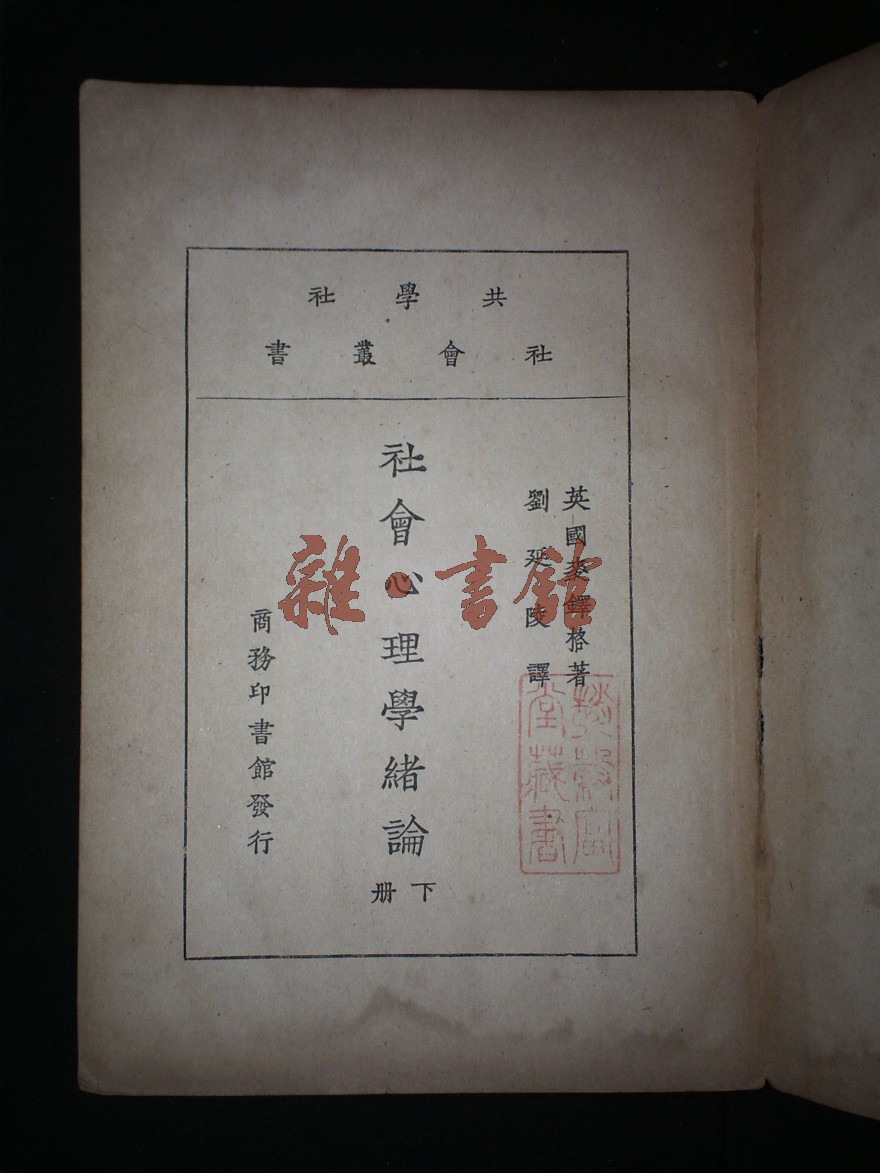 共學社
社會叢書
英國麥鐸格著
劉延陵譯
社會心理學緒論
下冊
商務印書館發行
雜·書館
堂藏書